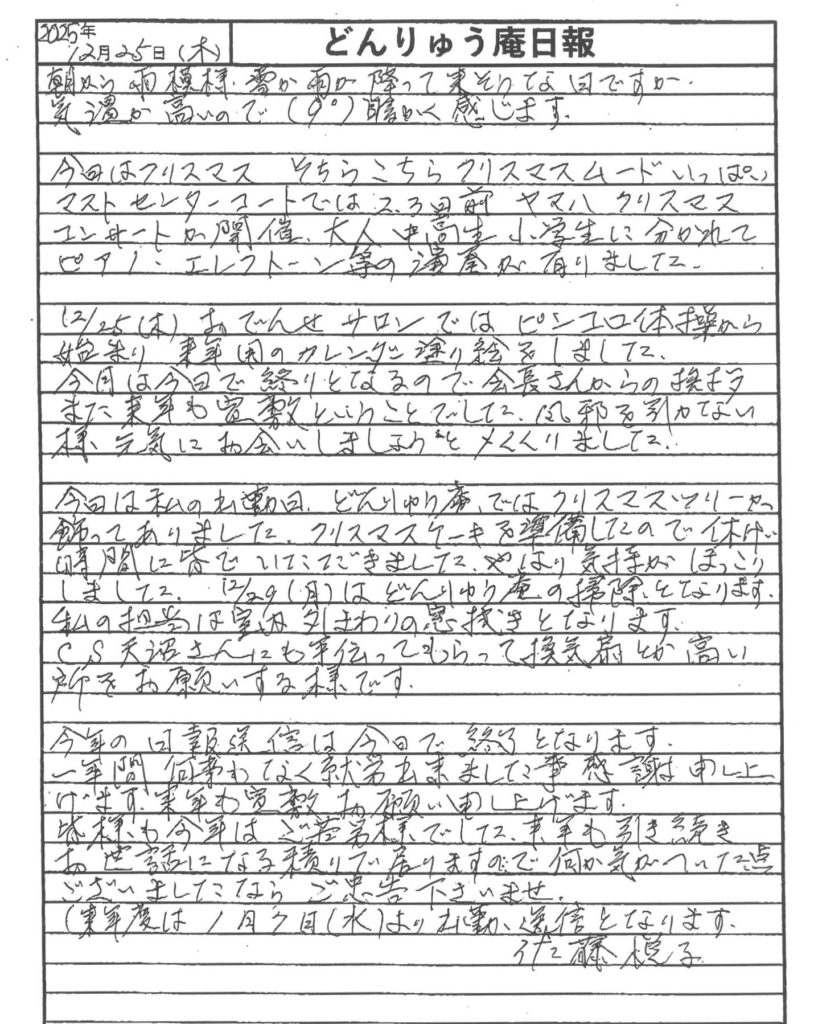 2025年
12月25日(木)
どんりゅう庵日報
朝から雨模様、雪か雨が降って来そうな日ですが、
気温が高いので(9°)暖かく感じます。
今日はクリスマス そちらこちらクリスマスムードいっぱい
マストセンターコートでは2.3日前 ヤマハ クリスマス
コンサートが開催、大人 中高生 小学生に分かれて
ピアノ・エレクトーン等の演奏が有りました。
12/25(木) おでんせサロンではピンコロ体操から
始まり 来年用のカレンダー塗り絵をしました。
今月は今日で終りとなるので会長さんからの挨拶
また来年も宜敷ということでした、風邪を引かない
様、元気にお会いしましょうと〆くくりました。
今日は私の出勤日、どんりゅう庵、ではクリスマスツリーが
飾ってありました、クリスマスケーキを準備したので休けい
時間に皆でいただきました、やはり気持がほっこり
しました。 12/29(月)はどんりゅう庵の掃除となります。
私の担当は室内外まわりの窓拭きとなります。
CS天沼さんにも手伝ってもらって換気扇とか高い
所をお願いする様です。
今年の日報送信は今日で終了となります。
一年間何事もなく就労出来ました事感謝申し上
げます。来年も宜敷お願い申し上げます。
皆様も今年はご苦労様でした、来年も引き続き
お世話になる積りで居りますので何か気がついた点
ございましたならご忠告下さいませ。
(来年度は1月7日(水)より出勤、送信となります。
佐藤悦子